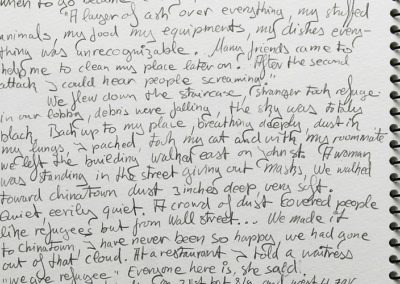 when to go became
"A layer of ash over everything, my stuffed
animals, my food my equipments, my dishes every-
thing was unrecognizable. Many friends came to
help me to clean my place later on. After the second
attack I could hear people screaming."
We flew down the staircase, stranger took refuge
in our lobby, debris were falling, the sky was totally
black. Back up to my place, breathing deeply dust in
my lungs I packed, took my cat and with my roommate
we left the building walked east on John st. A woman
was standing in the street giving out masks, we walked
toward chinatown dust 3 inches deep very soft.
Quiet, eerily quiet. A crowd of dust covered people
like refugees but from Wall street... We made it
to Chinatown, I have never been so happy, we had gone
out of that cloud. At a restaurant I told a waitress
"we are refugee" Everyone here is, she said.